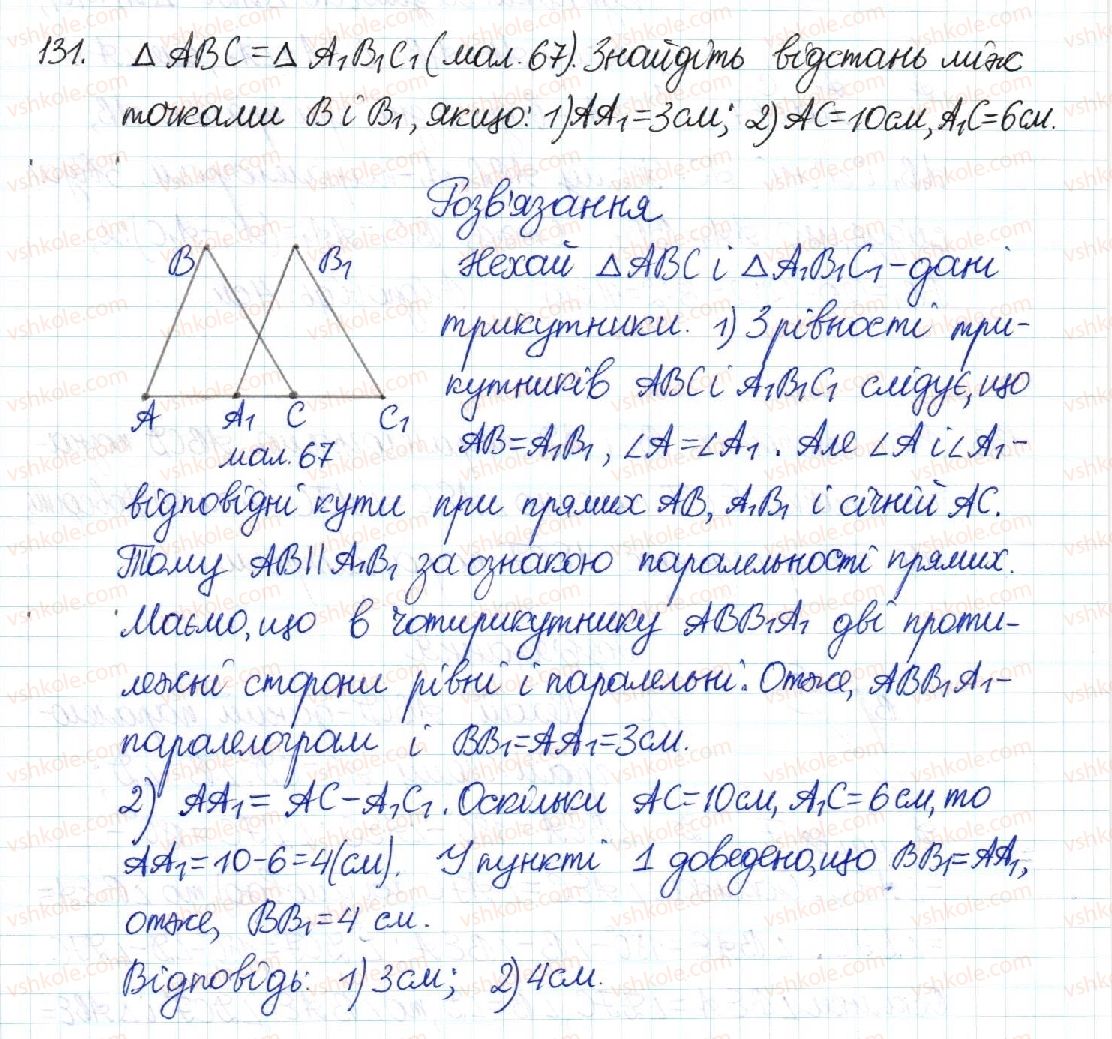 131. △ABC=△A₁B₁C₁(мал.67). Знайдіть відстань між
точками B і B₁, якщо: 1)AA₁=3см; 2) AC=10см, A₁C=6см.
Розв'язання
B B₁
A A₁ C C₁
мал.67
Нехай △ABC і △A₁B₁C₁-дані
трикутники. 1) З рівності три-
кутників ABC і A₁B₁C₁ слідує, що
AB=A₁B₁, ∠A=∠A₁. Але ∠A і ∠A₁-
відповідні кути при прямих AB, A₁B₁ і січній AC.
Тому AB||A₁B₁ за ознакою паралельності прямих.
Маємо, що в чотирикутнику ABB₁A₁ дві проти-
лежні сторони рівні і паралельні. Отже, ABB₁A₁-
паралелограм і BB₁=AA₁=3см.
2) AA₁= AC-A₁C₁. Оскільки AC=10см, A₁C=6см, то
AA₁=10-6=4(см). У пункті 1 доведено, що BB₁=AA₁,
отже, BB₁=4 см.
Відповідь: 1) 3см; 2) 4см.
vshkole.com